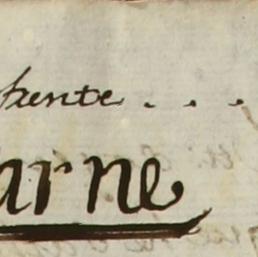 ente . . .
arne